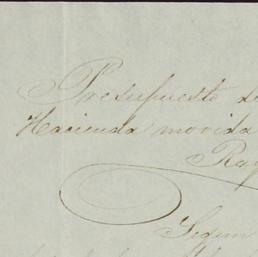 Presupuesto de
Hacienda movida
Ray
Segun